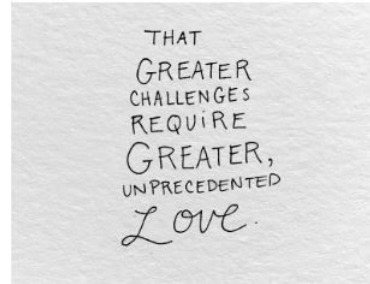 THAT
GREATER
CHALLENGES
REQUiRE
GREATER,
UNPRECEDENTED
Love.